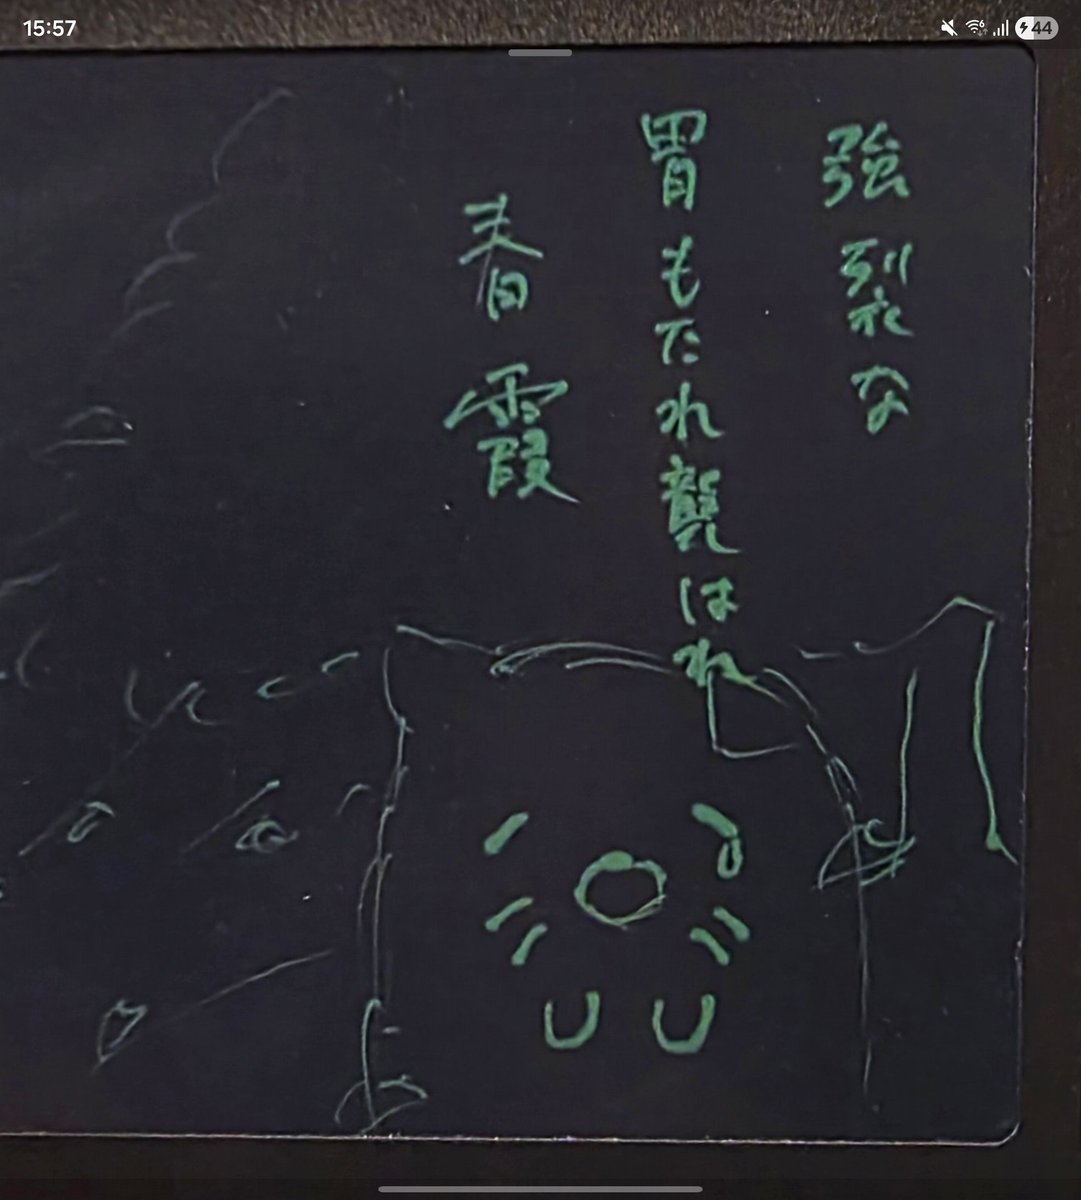 15:57
44
強烈な
胃もたれ襲はれ
春霞